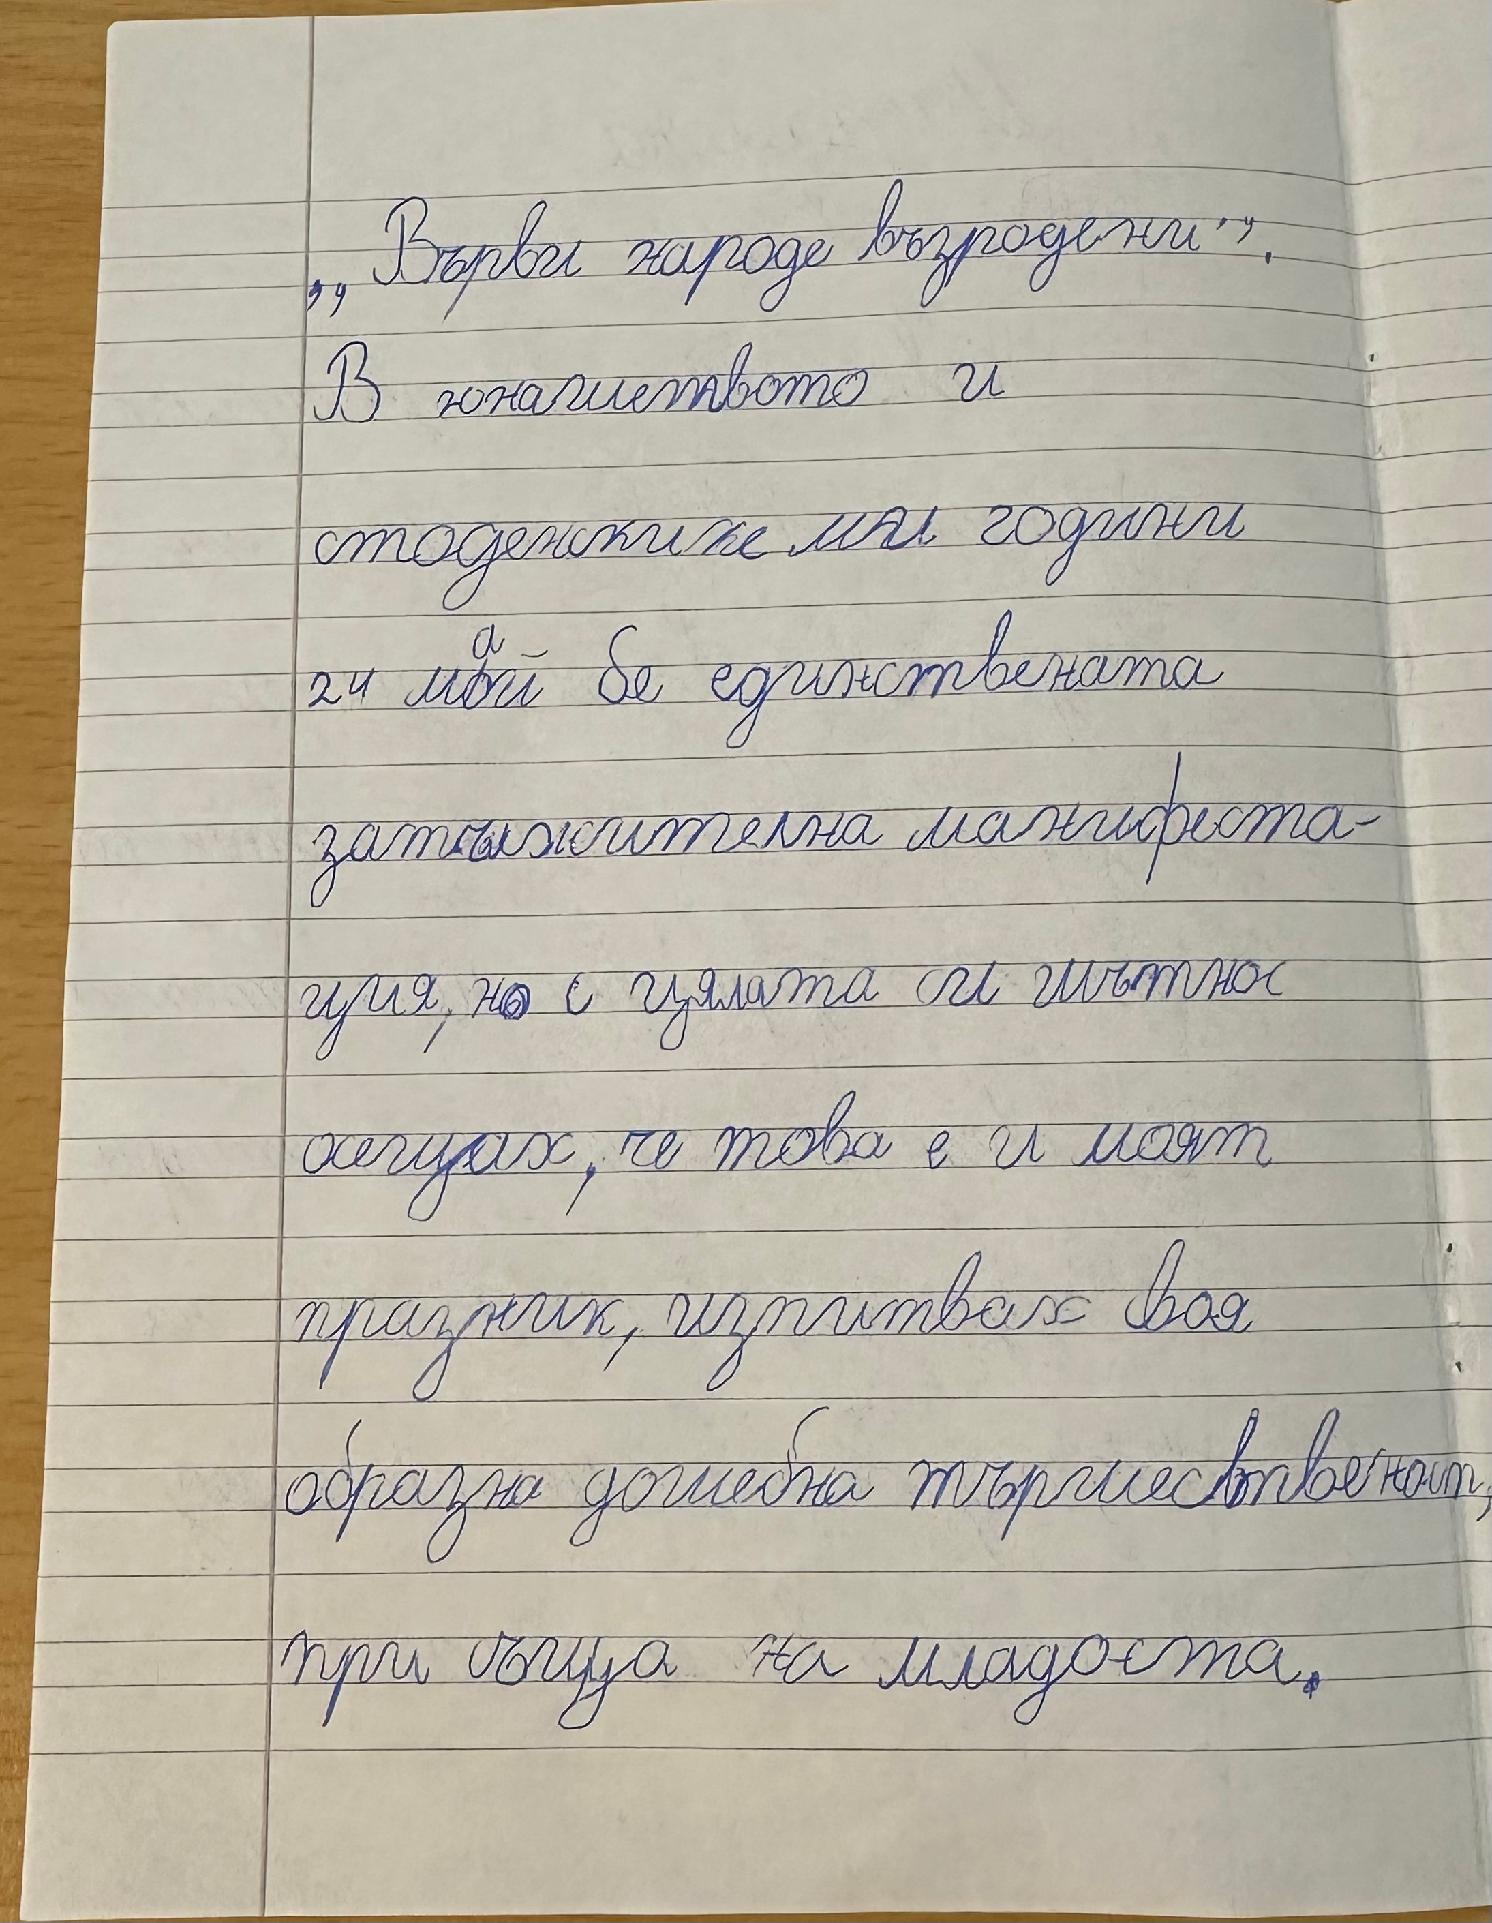 „Върви народе възродени".
В юнашеството и
стоденските ми години
24 май бе единствената
затължителна манифеста-
ция, но с цялата си шътнос
осещах, че това е и моят
празник, изпитвах своя
образна душебна тършественост,
при същa на младоста.